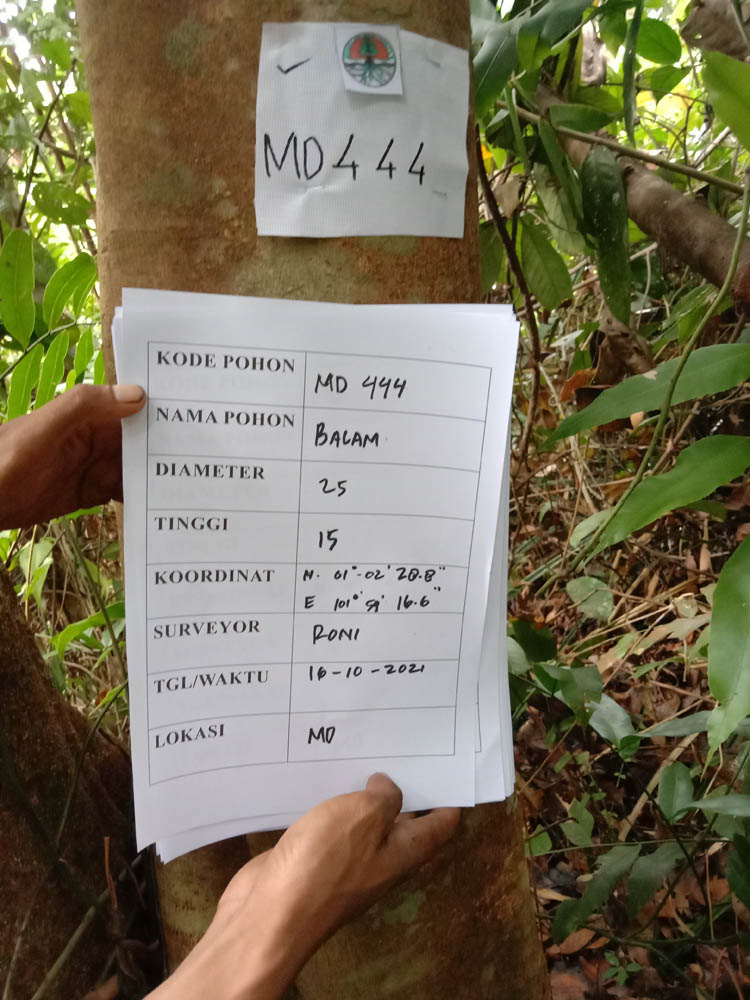 MD444
KODE POHON MD 444
NAMA POHON BALAM
DIAMETER 25
TINGGI 15
KOORDINAT N. 01°-02' 28.8"
E 101° 59' 16.6"
SURVEYOR RONI
TGL/WAKTU 16-10-2021
LOKASI MD